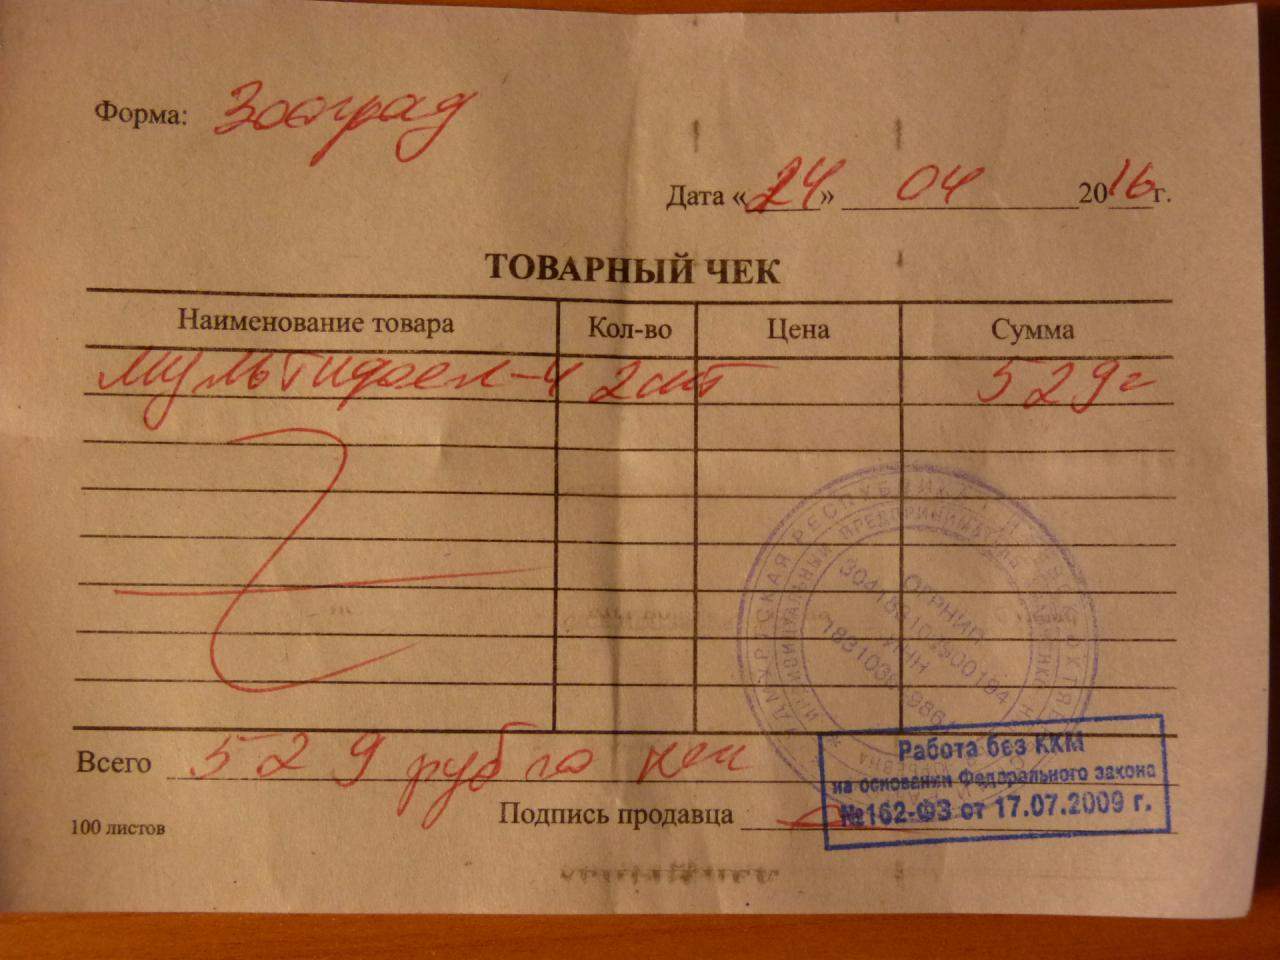 Форма: Зооград
Дата «24» 04 2016 г.
ТОВАРНЫЙ ЧЕК
Наименование товара Кол-во Цена Сумма
2шт 529
Всего 529 руб коп
Подпись продавца
100 листов
УДМУРТСКАЯ РЕСПУБЛИКА
ИНДИВИДУАЛЬНЫЙ ПРЕДПРИНИМАТЕЛЬ
ОГРНИП
ИНН
Работа без ККМ
на основании Федерального закона
№162-ФЗ от 17.07.2009 г.